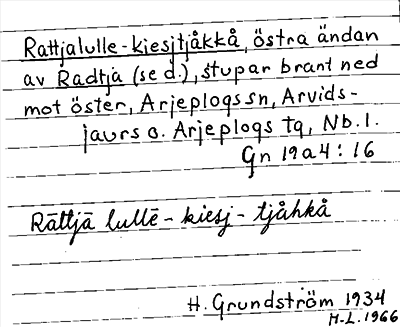 Rattjalulle-kiesjtjåkkå, östra ändan
av Radtja (se d.), stupar brant ned
mot öster, Arjeplogs sn, Arvids-
jaurs o. Arjeplogs tg, Nb. l.
Gn 19a4:16
Rāttjā lullē - kiesj - tjåhkå
H. Grundström 1934
H.L. 1966